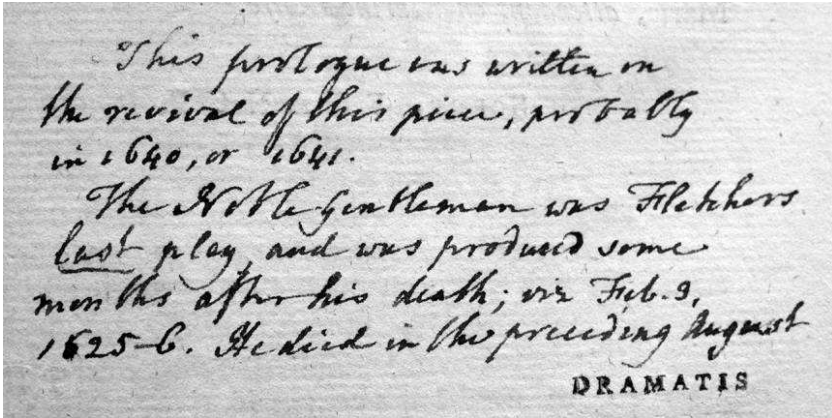 This prologue was written on
the revival of this piece, probably
in 1640, or 1641.
The Noble Gentleman was Fletchers
last play, and was produced some
months after his death; viz Feb. 3,
1625-6. He died in the preceeding August
DRAMATIS